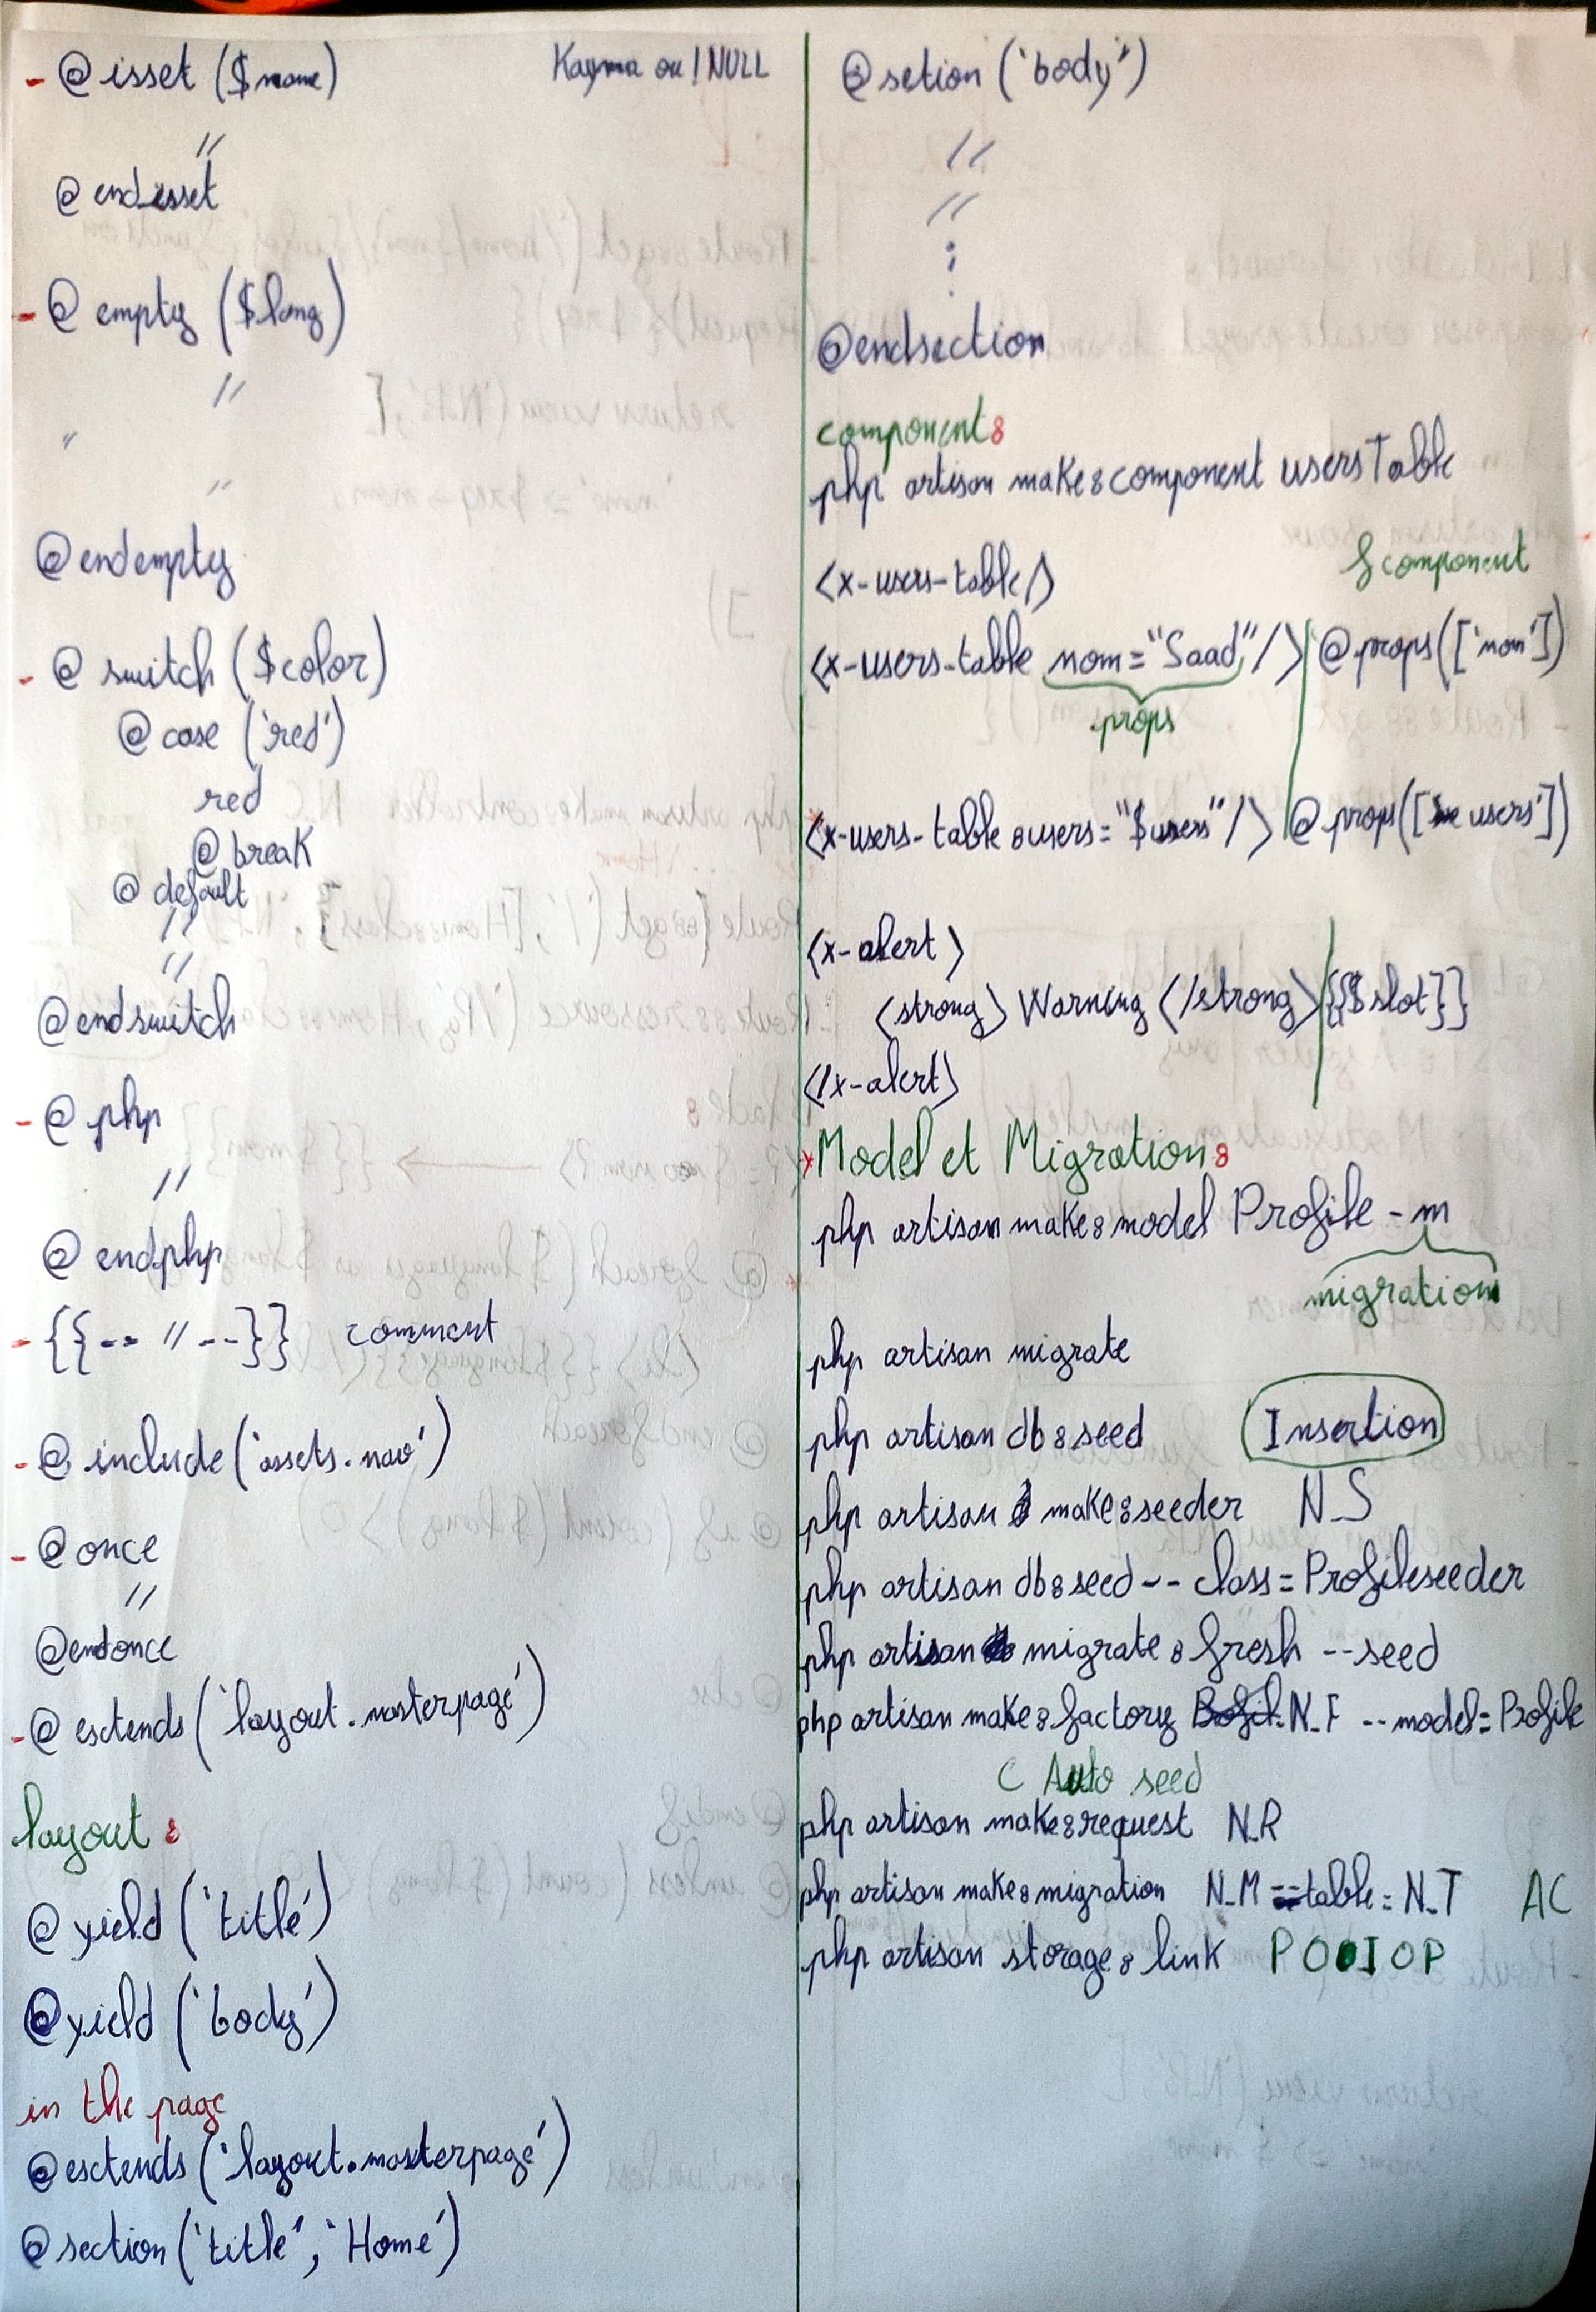 - @ isset ($name) Kayna ou !NULL
//
@ endisset
- @ empty ($lang)
//
"
"
@ endempty
- @ switch ($color)
@ case ('red')
red
@ break
@ default
//
//
@ endswitch
- @ php
//
@ endphp
- {{-- // --}} comment
- @ include ('assets.nav')
- @ once
//
@endonce
- @ extends ('layout.masterpage')
layout :
@ yield ('title')
@ yield ('body')
in the page
@ extends ('layout.masterpage')
@ section ('title', 'Home')
@ setion ('body')
//
//
:
@endsection
component:
php artisan make:component usersTable
<x-users-table/> f component
<x-users-table nom="Saad"/> @props(['nom'])
props
<x-users-table :users="$users"/> @props(['users'])
<x-alert>
<strong> Warning </strong> {{$slot}}
</x-alert>
* Model et Migration:
php artisan make:model Profile -m
migration
php artisan migrate
php artisan db:seed Insertion
php artisan make:seeder N_S
php artisan db:seed -- class=Profileseeder
php artisan migrate:fresh --seed
php artisan make:factory N_F --model=Profile
C Auto seed
php artisan make:request N_R
php artisan make:migration N_M --table=N_T AC
php artisan storage:link